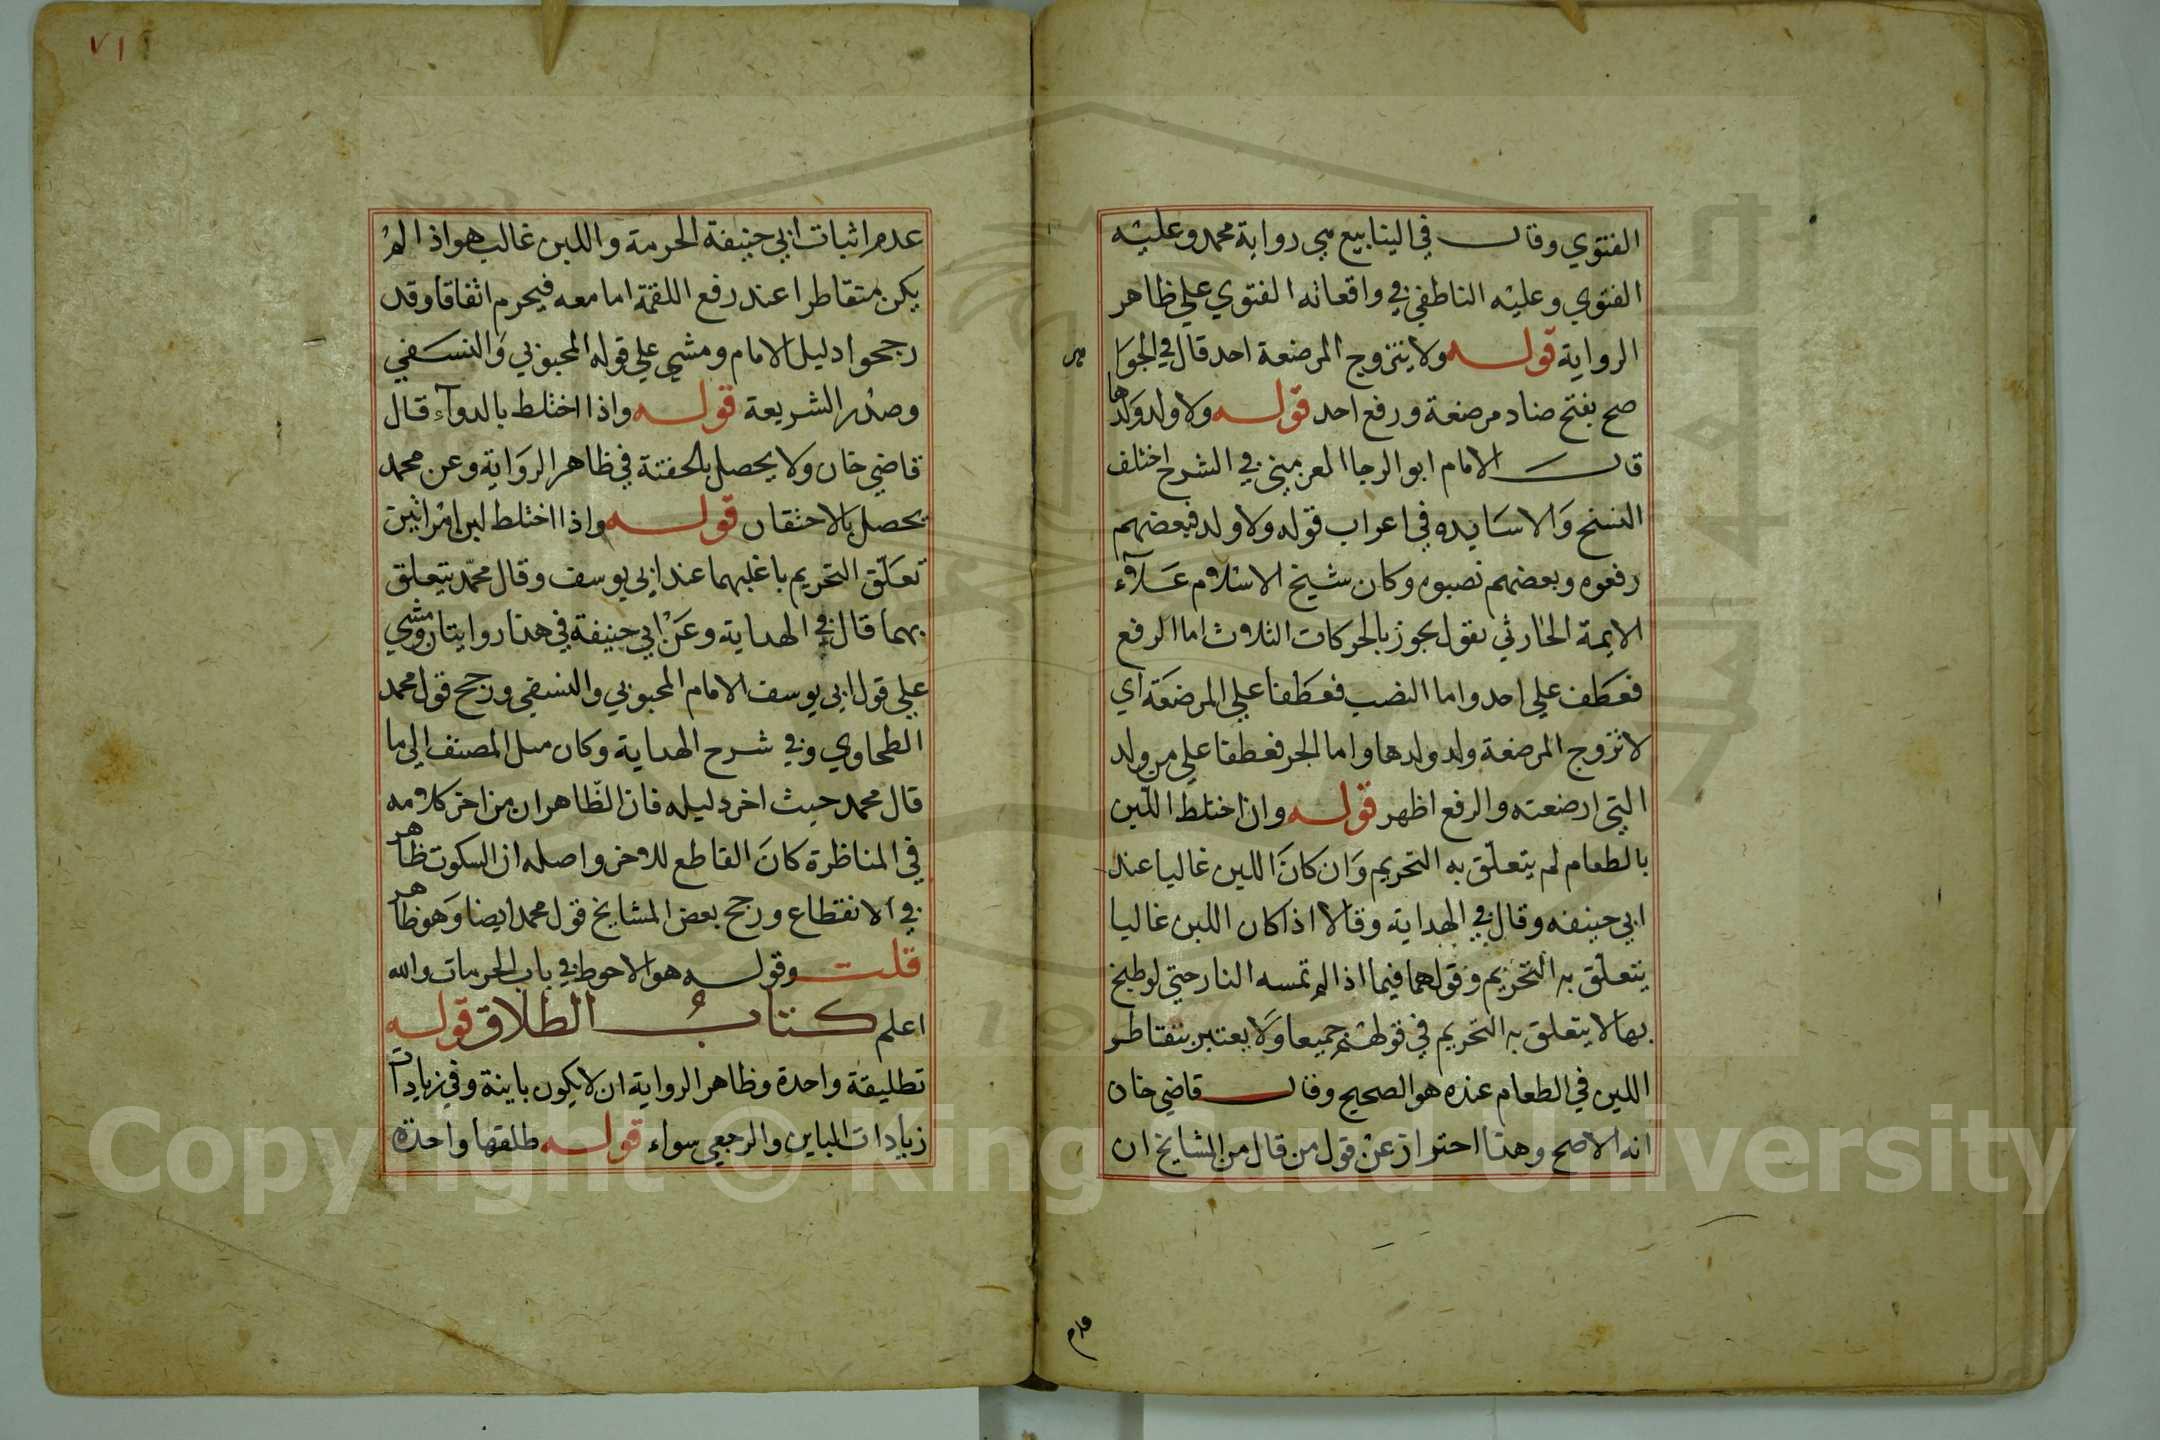 الفتوي وقال في الينابيع هي رواية محمد وعليه
الفتوي وعليه الناطفي في واقعاته الفتوي علي ظاهر
الرواية قوله ولا يتزوج المرضعة احد قال في الجوا
صح بفتح ضاد مرضعة ورفع احد قوله ولا ولد ولدها
قال الامام ابو الرجا العرميني في الشرح اختلف
النسخ والاساتيده في اعراب قوله ولا ولد فبعضهم
رفعوه وبعضهم نصبوه وكان شيخ الاسلام علاء
الايمة الحارثي يقول يجوز بالحركات الثلاث اما الرفع
فعطف علي احد واما النصب فعطفا علي المرضعة أي
لا تزوج المرضعة ولد ولدها واما الجر فعطفا علي من ولد
التي ارضعته والرفع اظهر قوله وان اختلط اللبن
بالطعام لم يتعلق به التحريم وان كان اللبن غالبا عند
ابي حنيفه وقال في الهداية وقالا اذا كان اللبن غالبا
يتعلق به التحريم وقولهما فيما اذا لم تمسه النار حتي لو طبخ
بها لا يتعلق به التحريم في قولهم جميعا ولا يعتبر بتقاطر
اللبن في الطعام عنده هو الصحيح وقال قاضي خان
انه الاصح وهذا احتراز عن قول من قال من المشايخ ان
عدم
٧١
عدم اثبات ابي حنيفة الحرمة واللبن غالب هو اذا لم
يكن متقاطرا عند رفع اللقمة اما معه فيحرم اتفاقا وقد
رجحوا دليل الامام ومشي علي قوله المحبوبي والنسفي
وصدر الشريعة قوله واذا اختلط بالدوآء قال
قاضي خان ولا يحصل بالحقنة في ظاهر الرواية وعن محمد
يحصل بالاحتقان قوله واذا اختلط لبن امراتين
تعلق التحريم باغلبهما عند ابي يوسف وقال محمد يتعلق
بهما قال في الهداية وعن ابي حنيفة في هذا روايتان ومشي
علي قول ابي يوسف الامام المحبوبي والنسفي ورجح قول محمد
الطحاوي وفي شرح الهداية وكان ميل المصنف الي ما
قال محمد حيث اخر دليله فان الظاهر ان من اخر كلامه
في المناظرة كان القاطع للاخر واصله ان السكوت ظاهر
في الانقطاع ورجح بعض المشايخ قول محمد ايضا وهو ظاهر
قلت وقوله هو الاحوط في باب الحرمات والله
اعلم كتاب الطلاق قوله
تطليقة واحدة وظاهر الرواية ان لا يكون باينة وفي زيادات
زيادات الباين والرجعي سواء قوله طلقها واحدة
Copyright © King Saud University